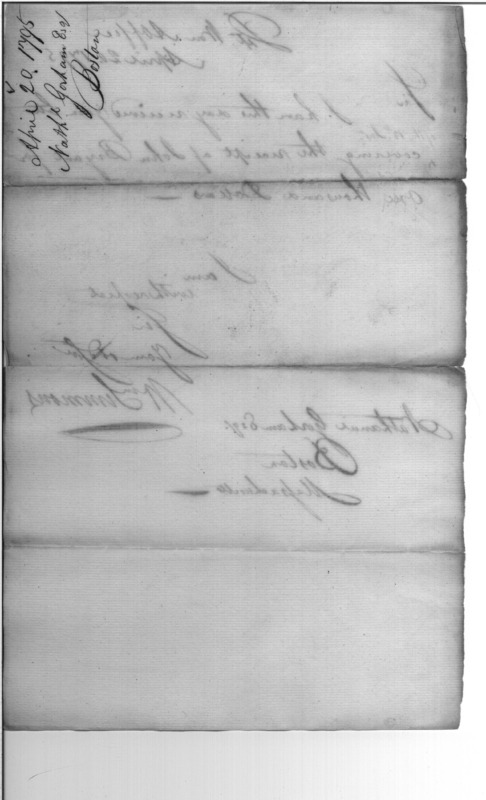 April 20. 1795
Nathl. Gorham Esqr
Boston
April 20
Sir
I have this day received
covering the receipt of John Bryant
One thousand Dollars
I am
with respect
Sir
Wm Simmons
Nathaniel Gorham Esqr.
Boston
Massachusetts